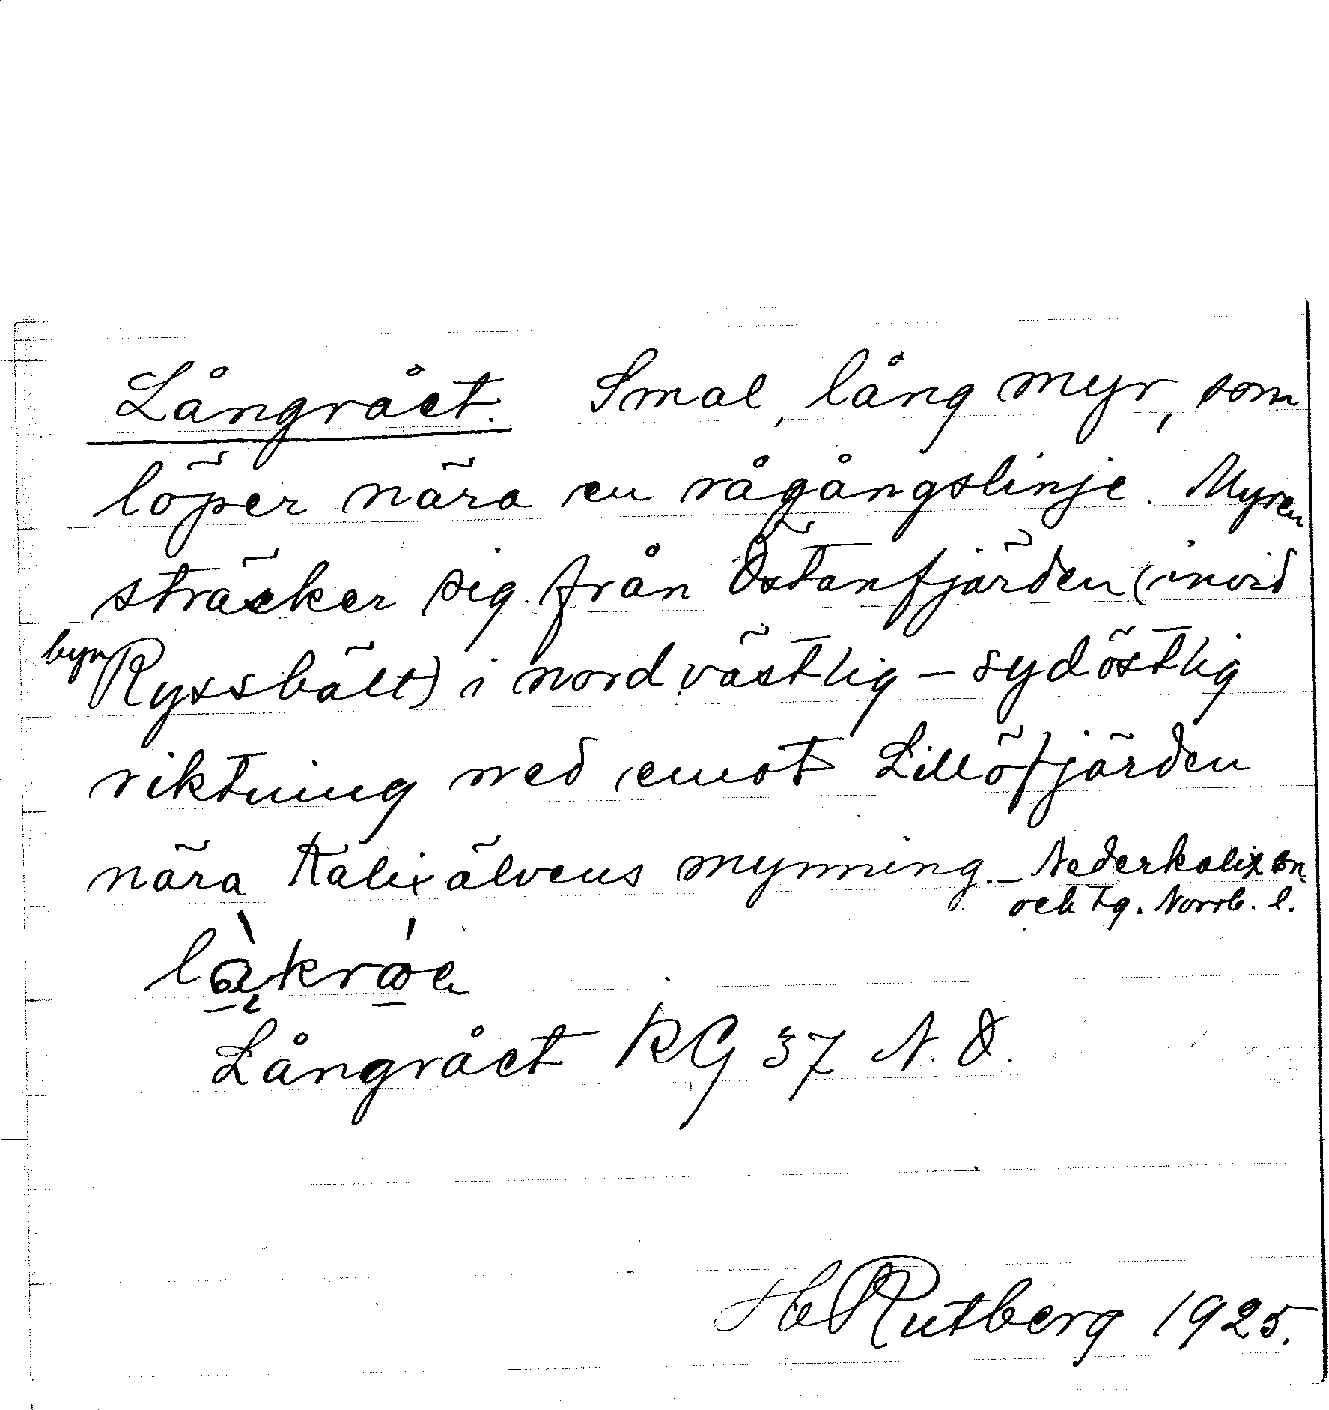 Långrået. Smal, lång myr, som
löper nära en rågångslinje. Myren
sträcker sig från Östanfjärden (invid
byn Ryssbält) i nordvästlig – sydöstlig
riktning ned emot Lillöfjärden
nära Kalixälvens mynning. – Nederkalix sn
och tg. Norrb. l.
Långrået RG 37 N. Ö.
H Rutberg 1925.